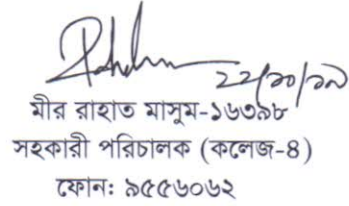 ২২/১০/১৯
মীর রাহাত মাসুম-১৬৩৯৮
সহকারী পরিচালক (কলেজ-৪)
ফোন: ৯৫৫৬০৬২